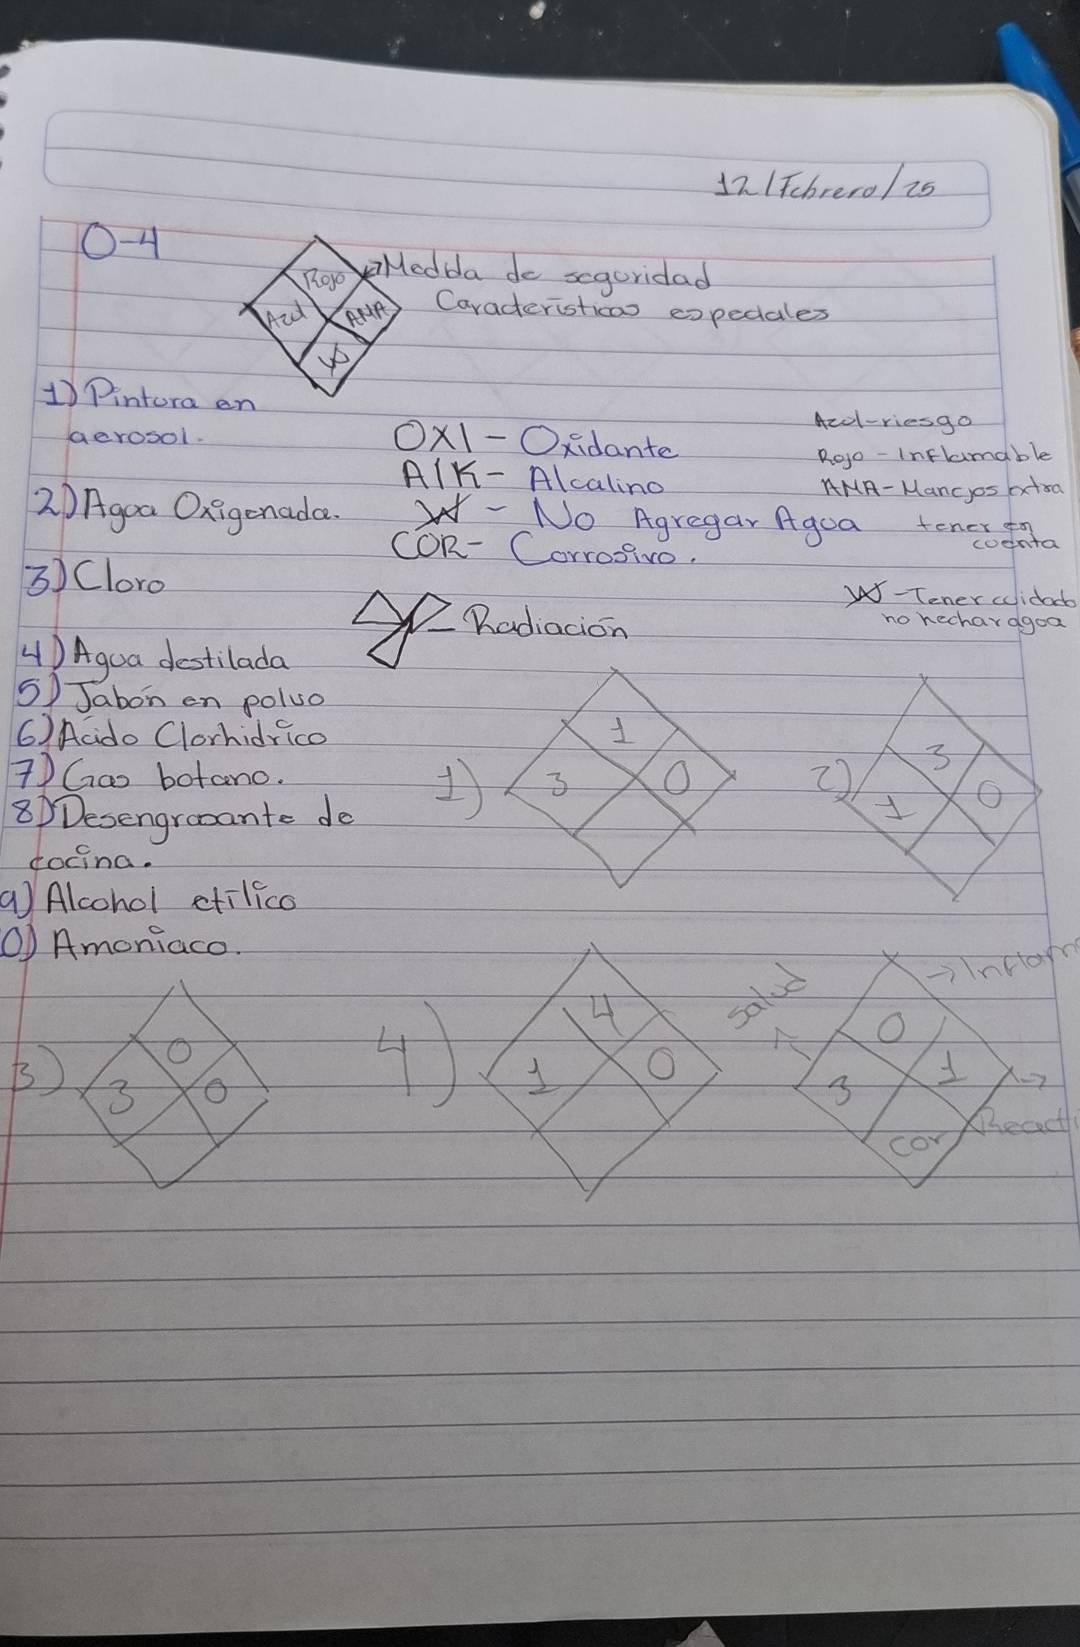 12/Febrero/25
0-4
Rojo
Azul
AMA
W
Medida de seguridad
Caracteristicas especiales
1) Pintura en
aerosol.
OXI - Oxidante
AlK - Alcalino
W - No Agregar Agua
COR - Corrosivo.
Radiación
Azul-riesgo
Rojo - Inflamable
AMA - Manejos extra
tener en
cuenta
W - Tener cuidado
no hechar agua
2) Agua Oxigenada.
3) Cloro
4) Agua destilada
5) Jabón en polvo
6) Acido Clorhidrico
7) Gas botano.
8) Desengrasante de
cocina.
9) Alcohol etílico
0) Amoniaco.
1)
1
3
0
2)
3
1
0
3)
0
3
0
4)
4
1
0
Salud
→ Inflam
0
3
1
→
Reacti
cor